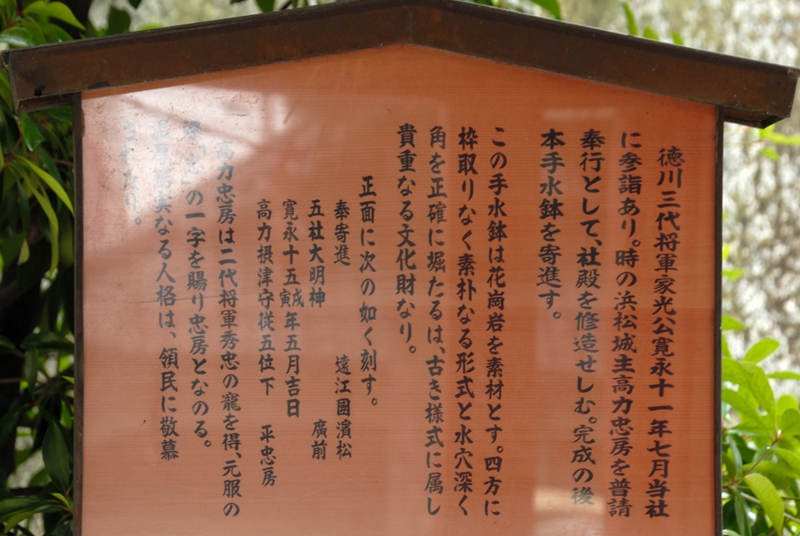 徳川三代将軍家光公寛永十一年七月当社
に参詣あり。時の浜松城主高力忠房を普請
奉行として、社殿を修造せしむ。完成の後
本手水鉢を寄進す。
この手水鉢は花崗岩を素材とす。四方に
枠取りなく素朴なる形式と水穴深く
角を正確に堀たるは、古き様式に属し
貴重なる文化財なり。
正面に次の如く刻す。
奉寄進 遠江國濱松
五社大明神 廣前
寛永十五戊寅年五月吉日
高力摂津守従五位下 平忠房
高力忠房は二代将軍秀忠の寵を得、元服の
際、忠の一字を賜り忠房となのる。
なる人格は、領民に敬慕
されたり。